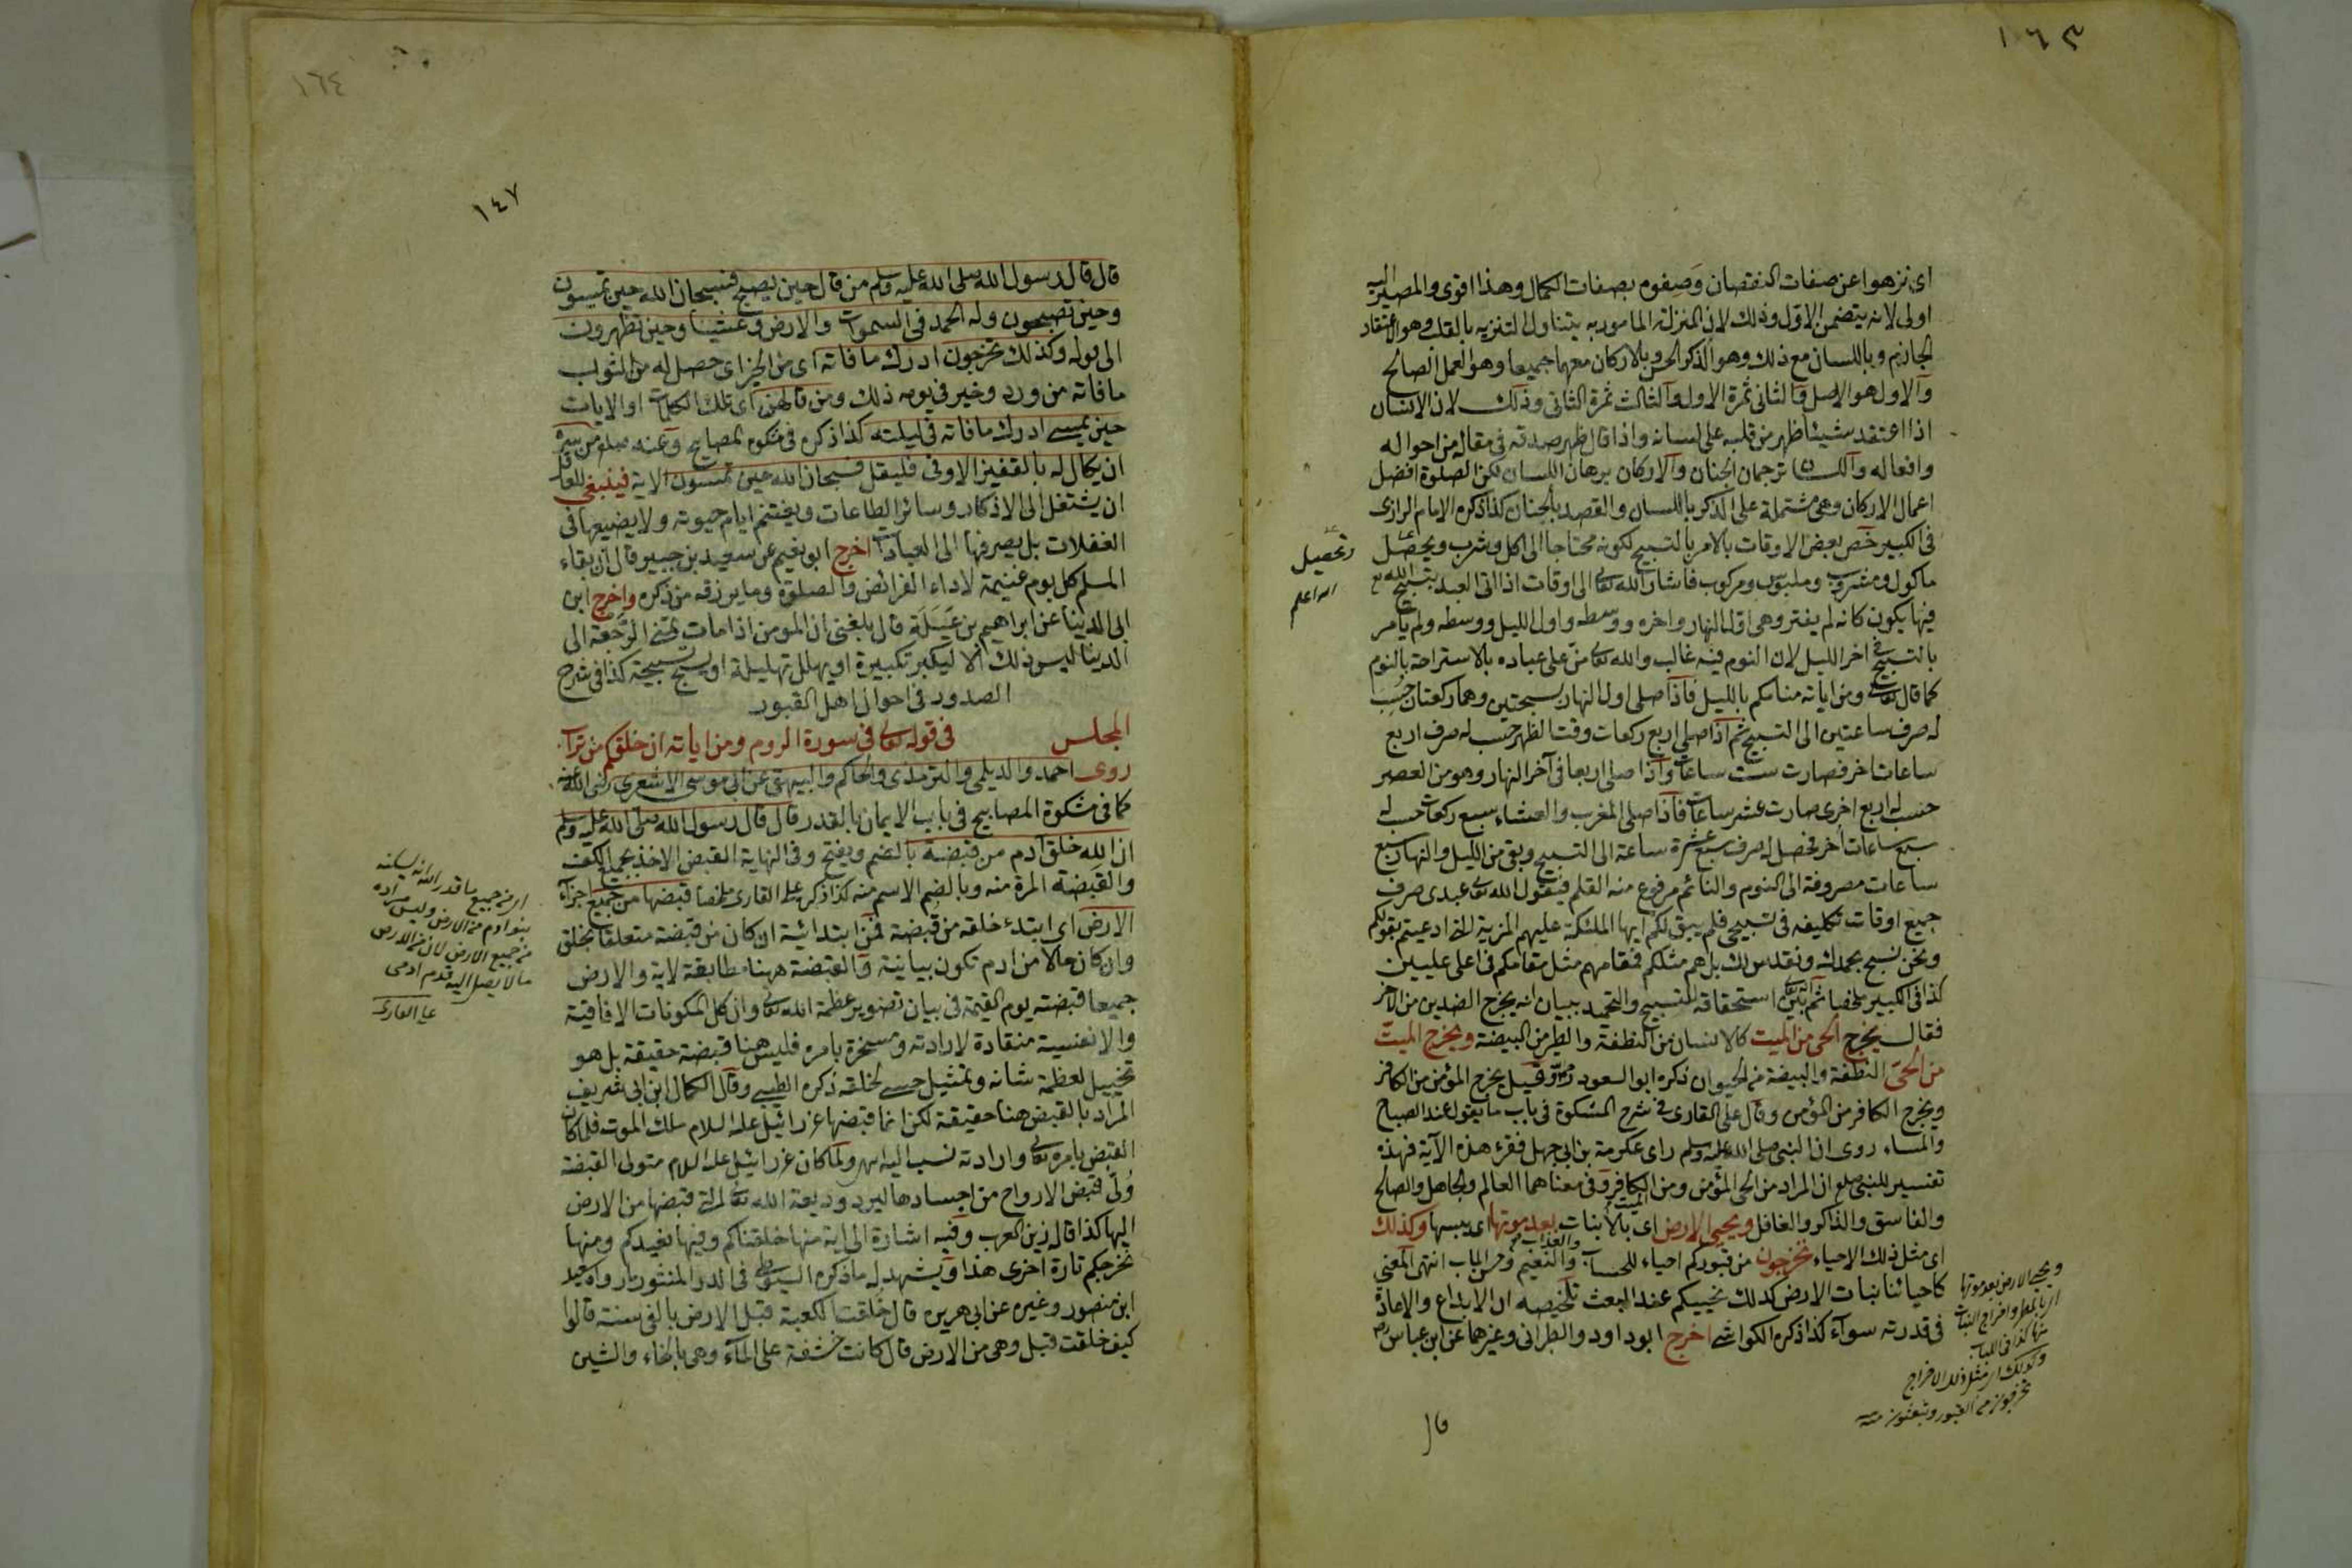 ١٦٣
اى نزهوا عن صفات النقصان وصفوه بصفات الكمال وهذا اقوى والمصير اليه
اولى لانه يتضمن الاول وذلك لان المنزلة المامور به يتناول التنزيه بالقلب وهو الاعتقاد
الجازم وباللسان مع ذلك وهو الذكر الحسن وبالاركان معهما جميعا وهو العمل الصالح
والاول هو الاصل والثانى ثمرة الاول والثالث ثمرة الثانى وذلك لان الانسان
اذا اعتقد شيئا ظهر من قلبه على لسانه واذا قال ظهر صدقه فى مقاله من احواله
وافعاله واللسان ترجمان الجنان والاركان برهان اللسان لكن الصلوة افضل
اعمال الاركان وهى مشتملة على الذكر باللسان والقصد بالجنان كذا ذكره الامام الرازى
فى الكبير خص بعض الاوقات بالامر بالتسبيح لكونه محتاجا الى اكل وشرب ويحصل
وتحصيل
ماكول ومشروب وملبوس ومركوب فاشار الله تعالى الى اوقات اذا اتى العبد بتسبيح الله
الله اعلم
فيها يكون كانه لم يفتر وهى اول النهار واخره ووسطه واول الليل ووسطه ولم يامر
بالتسبيح فى اخر الليل لان النوم فيه غالب والله تعالى من على عباده بالاستراحة بالنوم
كما قال تعالى ومن اياته منامكم بالليل فاذا صلى اول النهار بسبحتين وهما ركعتان حسب
له صرف ساعتين الى التسبيح ثم اذا صلى اربع ركعات وقت الظهر حسب له صرف اربع
ساعات اخر فصارت ست ساعات واذا صلى اربعا فى آخر النهار وهو من العصر
حسب له اربع اخرى صارت عشر ساعات فاذا صلى المغرب والعشاء سبع ركعات حسب له
سبع ساعات أخر فحصل له صرف سبع عشرة ساعة الى التسبيح وبقى من الليل والنهار سبع
ساعات مصروفة الى النوم والنائم مرفوع منه القلم فيقول الله تعالى عبدى صرف
جميع اوقات تكليفه فى تسبيحى فلم يبق لكم ايها الملئكة عليهم المزية التى ادعيتم بقولكم
ونحن نسبح بحمدك ونقدس لك بل هم مثلكم فمقامهم مثل مقامكم فى اعلى عليين
كذا فى الكبير ملخصا ثم بين الله تعالى استحقاقه للتسبيح والتحميد ببيان انه يخرج الضدين من الاخر
فقال يخرج الحى من الميت كالانسان من النطفة والطير من البيضة ويخرج الميت
من الحى النطفة والبيضة من الحيوان ذكره ابو السعود وقيل يخرج المؤمن من الكافر
ويخرج الكافر من المؤمن وقال على القارى فى شرح المشكوة فى باب ما يقول عند الصباح
والمساء روى ان النبى صلى الله عليه وسلم راى عكرمة بن ابى جهل فقرء هذه الآية فهذه
تفسير للنبى صلعم ان المراد من الحى المؤمن ومن الميت الكافر وفى معناهما العالم والجاهل والصالح
والفاسق والذاكر والغافل ويحيى الارض اى بالانبات بعد موتها اى يبسها وكذلك
اى مثل ذلك الاحياء تخرجون من قبوركم احياء للحساب والعذاب والنعيم وحسن الماب انتهى المعنى
كاحيائنا بنبات الارض كذلك نحييكم عند البعث تلخيصه ان الابداع والاعادة
فى قدرته سواء كذا ذكره الكواشى اخرج ابو داود والطبرانى وغيرهما عن ابن عباس رض
ويحيى الارض بعد موتها
اى بالمطر واخراج النبات
منها كذا فى اللباب
وكذلك اى مثل ذلك الاخراج
تخرجون من القبور وتبعثون منه
قال
١٦٤
١٤٧
قال قال رسول الله صلى الله عليه وسلم من قال حين يصبح فسبحان الله حين تمسون
وحين تصبحون وله الحمد فى السموات والارض وعشيا وحين تظهرون
الى قوله وكذلك تخرجون ادرك ما فاته اى من الخير اى حصل له من الثواب
ما فاته من ورد وخير فى يومه ذلك ومن قالهن اى تلك الكلمات او الايات
حين يمسى ادرك ما فاته فى ليلته كذا ذكره فى مشكوة المصابيح وعنه صلعم من سره
ان يكال له بالقفيز الاوفى فليقل فسبحان الله حين تمسون الاية فينبغى للعاقل
ان يشتغل الى الاذكار وسائر الطاعات ويغتنم ايام حيوته ولا يضيعها فى
الغفلات بل يصرفها الى العبادات اخرج ابو نعيم عن سعيد بن جبير قال ان بقاء
المسلم كل يوم غنيمة لاداء الفرائض والصلوة وما يرزقه من ذكره واخرج ابن
ابى الدينا عن ابراهيم بن عبلة قال بلغنى ان المؤمن اذا مات تمنى الرجعة الى
الدينا ليس ذلك الا ليكبر تكبيرة او يهلل تهليلة او يسبح تسبيحة كذا فى شرح
الصدور فى احوال اهل القبور
المجلس فى قوله تعالى فى سورة الروم ومن اياته ان خلقكم من تراب
روى احمد والديلمى والترمذى والحاكم والبيهقى عن ابى موسى الاشعرى رضى الله عنه
كما فى مشكوة المصابيح فى باب الايمان بالقدر قال قال رسول الله صلى الله عليه وسلم
ان الله خلق آدم من قبضة بالضم ويفتح وفى النهاية القبض الاخذ بجميع الكف
والقبضة المرة منه وبالضم الاسم منه كذا ذكره على القارى ملخصا قبضها من جميع اجزاء
الارض اى ابتدء خلقه من قبضة فمن ابتدائية ان كان من قبضة متعلقا بخلق
وان كان حالا من ادم تكون بيانية والقبضة ههنا مطابقة لاية والارض
جميعا قبضته يوم القيمة فى بيان تصوير عظمة الله تعالى وان كل المكونات الافاقية
والانفسية منقادة لارادته ومسخرة بامره فليس هنا قبضة حقيقة بل هو
تخييل لعظمة شانه وتمثيل حسى لخلقه ذكره الطيبى وقال الكمال ابن ابى شريف
المراد بالقبض هنا حقيقة لكن انما قبضها عزرائيل عليه السلام ملك الموت فلما كان
القبض بامره تعالى وارادته نسب اليه ولما كان عزرائيل عليه السلام متولى القبضة
ولى قبض الارواح من اجسادها ليرد وديعة الله تعالى التى قبضها من الارض
اليها كذا قاله زين العرب وفيه اشارة الى اية منها خلقناكم وفيها نعيدكم ومنها
نخرجكم تارة اخرى هذا ويشهد له ما ذكره السيوطى فى الدر المنثور بما رواه سعيد
ابن منصور وغيره عن ابى هريره قال خلقت الكعبة قبل الارض بالفى سنة قالوا
كيف خلقت قبل وهى من الارض قال كانت خشفة على الماء وهى بالخاء والشين
اى من جميع ما قدر الله ان يسكنه
بنو ادم من الارض وليس مراده
من جميع الارض لان من الارض
ما لا يصل اليه قدم ادمى
على القارى